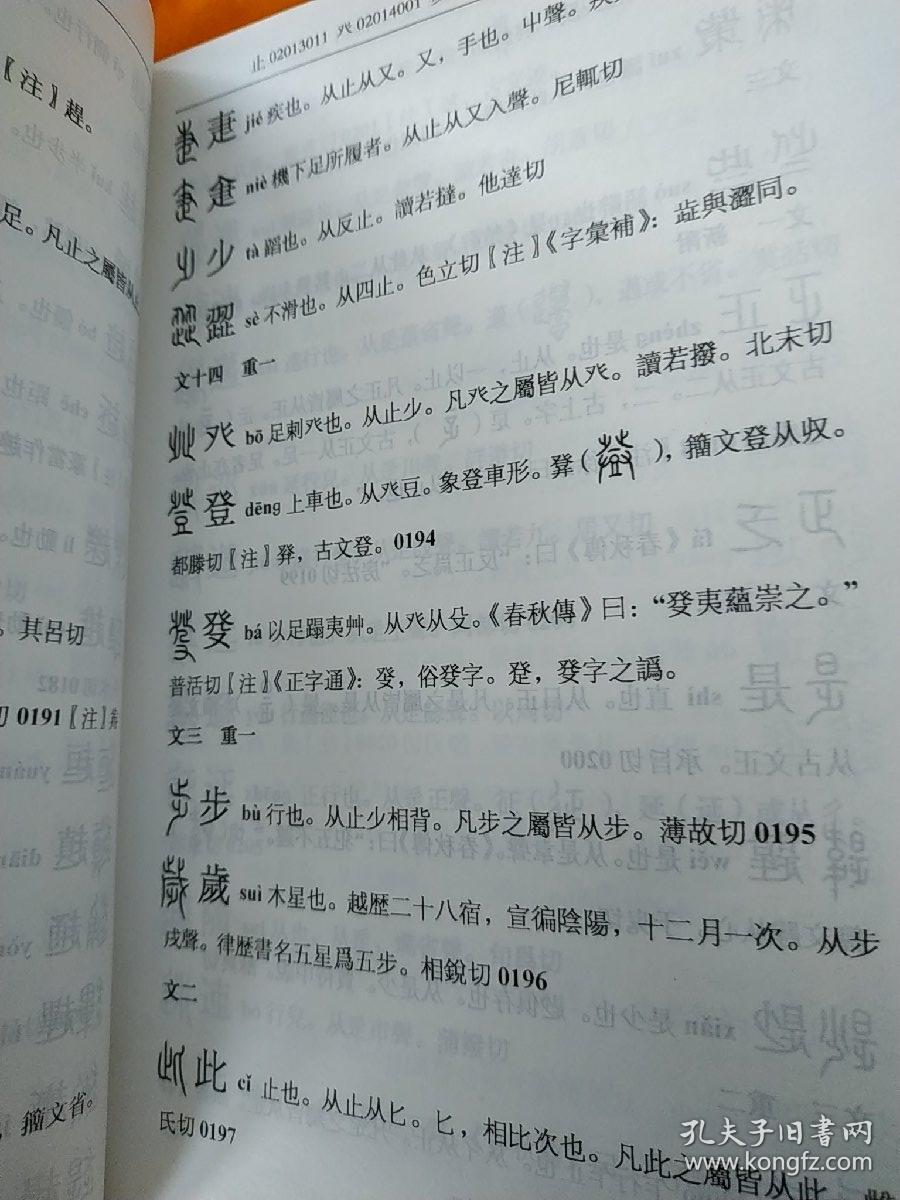 止 02013011 癶 02014001
疌 jié 疾也。从止从又。又，手也。屮聲。疾
疌 niè 機下足所履者。从止从又入聲。尼輒切
少 tà 蹈也。从反止。讀若撻。他達切
澀 sè 不滑也。从四止。色立切【注】《字彙補》：歮與澀同。
文十四 重一
癶 bō 足剌癶也。从止少。凡癶之屬皆从癶。讀若撥。北末切
登 dēng 上車也。从癶豆。象登車形。𤼷（），籀文登从収。
都滕切【注】𤼪，古文登。0194
癹 bá 以足蹋夷艸。从癶从殳。《春秋傳》曰：“癹夷蘊崇之。”
普活切【注】《正字通》：發，俗癹字。
文三 重一
步 bù 行也。从止少相背。凡步之屬皆从步。薄故切 0195
歲 suì 木星也。越歷二十八宿，宣徧陰陽，十二月一次。从步
戌聲。律歷書名五星爲五步。相銳切 0196
文二
此 cǐ 止也。从止从匕。匕，相比次也。凡此之屬皆从此
氏切 0197
【注】趕。
足。凡止之屬皆从止
其呂切
切 0191【注】
籀文省。
孔夫子旧书网
www.kongfz.com